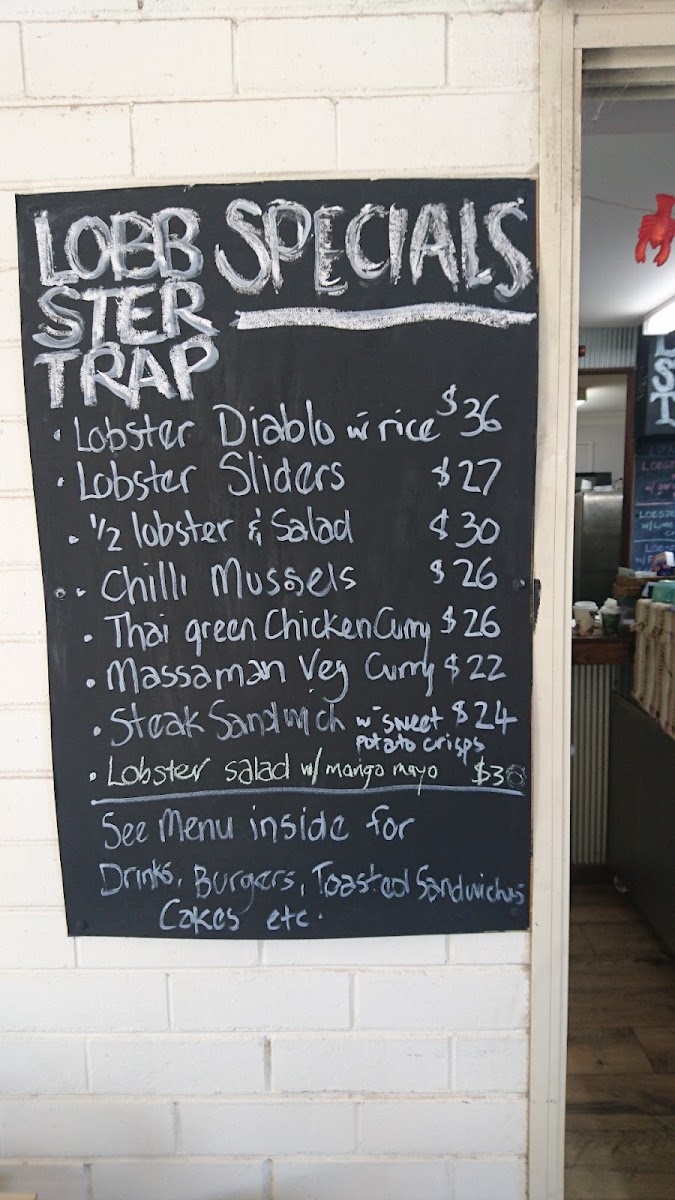 LOBB SPECIALS
STER
TRAP
• Lobster Diablo w rice $36
• Lobster Sliders $27
• 1/2 lobster & Salad $30
• Chilli Mussels $26
• Thai green Chicken Curry $26
• Massaman Veg Curry $22
• Steak Sandwich w sweet $24
potato crisps
• Lobster salad w/ mango mayo $30
See Menu inside for
Drinks, Burgers, Toasted Sandwiches
Cakes etc.